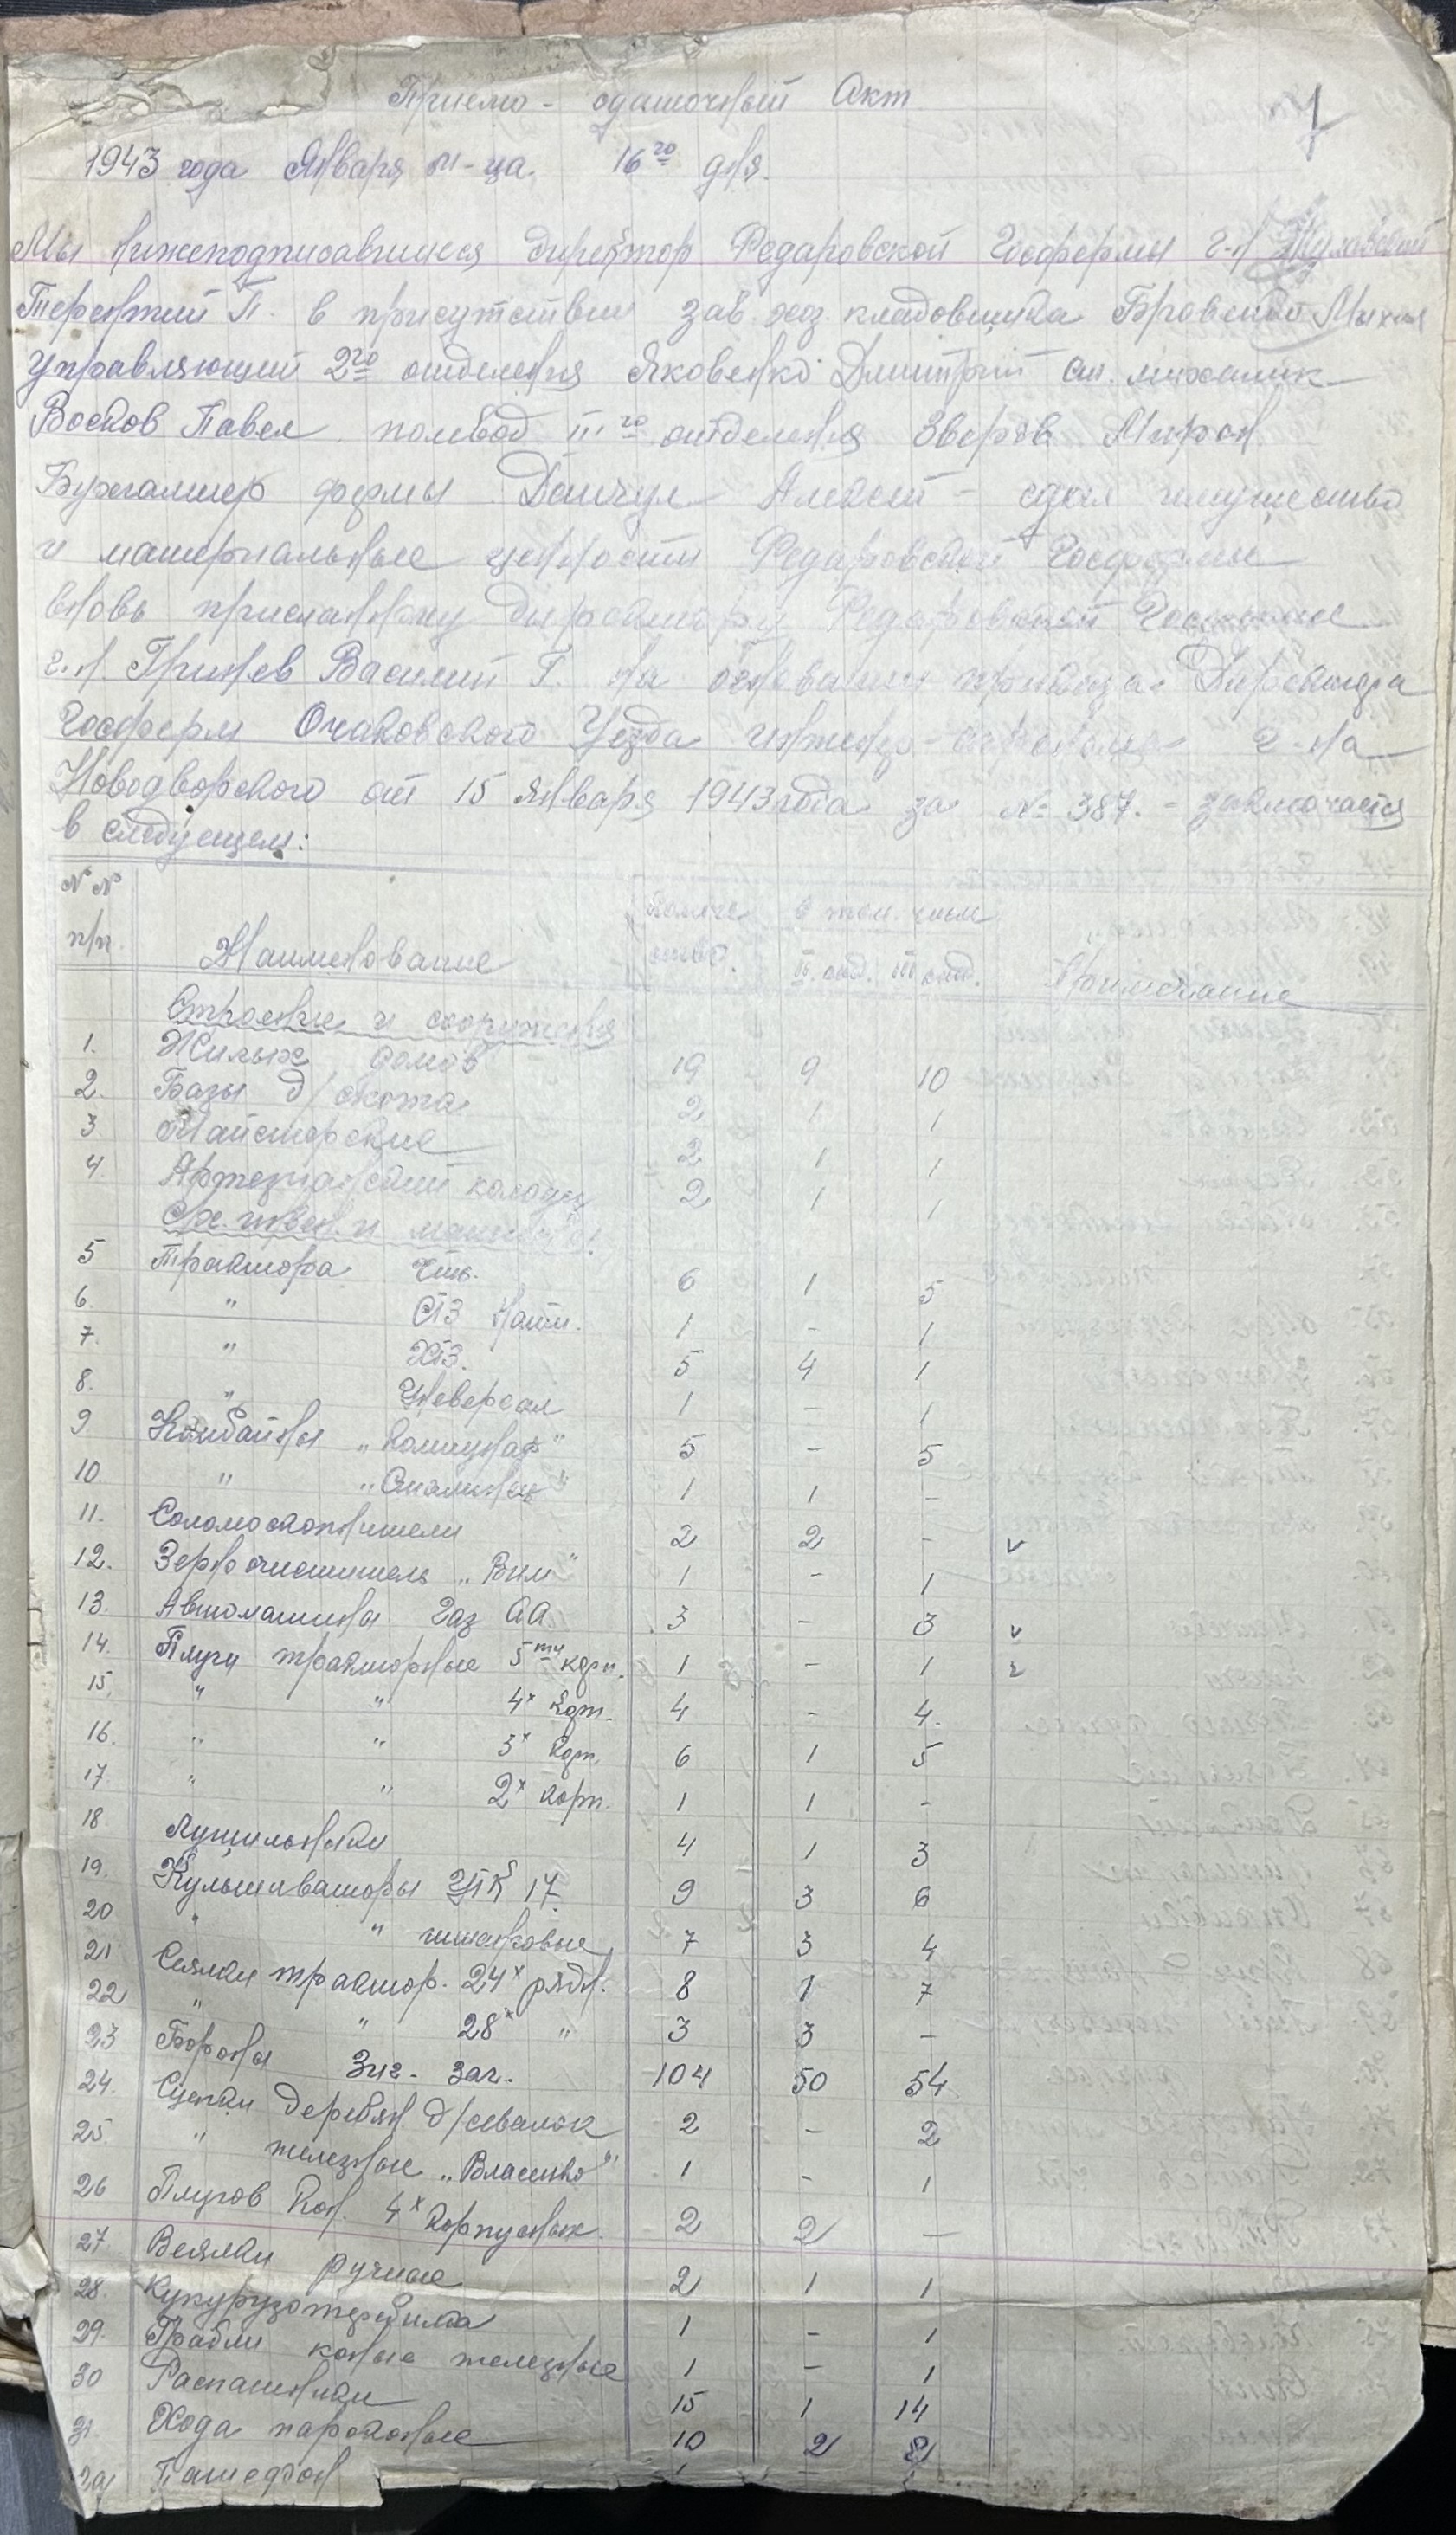 Приемо-сдаточный Акт
1
1943 года Января м-ца. 16го дня.
Мы нижеподписавшиеся директор Федаровской Госфермы г-н
Терентий П. в присутствии зав. хоз. кладовщика
Управляющий 2го отделения Яковенко Дмитрий ст. миханик
Восков Павел, полевод III го отделения Зверев Мирон
Бухгалтер фермы Данчул Алексей - сдал имущество
и материальные ценности Федаровской Госфермы
вновь присланному директору Федаровской Госфермы
г.н. Гринев Василий Г. на основании приказа Директора
Госферм Очаковского Уезда инженер-агронома г-на
Новодворского от 15 января 1943 года за № 387. - заключается
в следующем:
№ № п/п. Наименование Количество. в том. числе II. отд. III отд. Примечание
Строения и сооружения
1. Жилых домов 19 9 10
2. Базы д/скота 2 1 1
3 Майсторские 2 1 1
4. Артезианский колодец 2 1 1
Сх. инвен. и машины
5 Трактора Чтз. 6 1 5
6. " СТЗ Нати. 1 - 1
7. " ХТЗ. 5 4 1
8. " Уневерсал 1 - 1
9 Комбайны „Коммунар" 5 - 5
10. " „Сталинец" 1 1 -
11. Соломоскопнители 2 2 - v
12. Зерноочиститель „Вим" 1 - 1
13. Автомашины Газ АА 3 - 3 v
14. Плуги тракторные 5ти корп. 1 - 1
15. " " 4х корп. 4 - 4.
16. " " 3х корп. 6 1 5
17 " " 2х корп. 1 1 -
18 Лущильники 4 1 3
19. Культиваторы УТК 17 9 3 6
20 " " 7 3 4
21 Сеялки трактор. 24х рядн. 8 1 7
22 " " 28х " 3 3 -
23 Бороны Зиг-заг. 104 50 54
24. Сцепки деревян. д/севалок 2 - 2
25. " железные „Власенко" 1 - 1
26 Плугов Кон. 4х корпусных. 2 2 -
27. Веялки ручные 2 1 1
28. Кукурузотеребилка 1 - 1
29. Грабли коные железные 1 - 1
30 Распашники 15 1 14
31. Хода пароконые 10 2 8